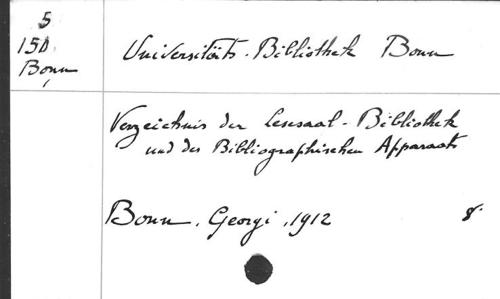 5
150
Bonn
Universitäts-Bibliothek Bonn
Verzeichnis der Lesesaal-Bibliothek
und des Bibliographischen Apparats
Bonn, Georgi, 1912 8°